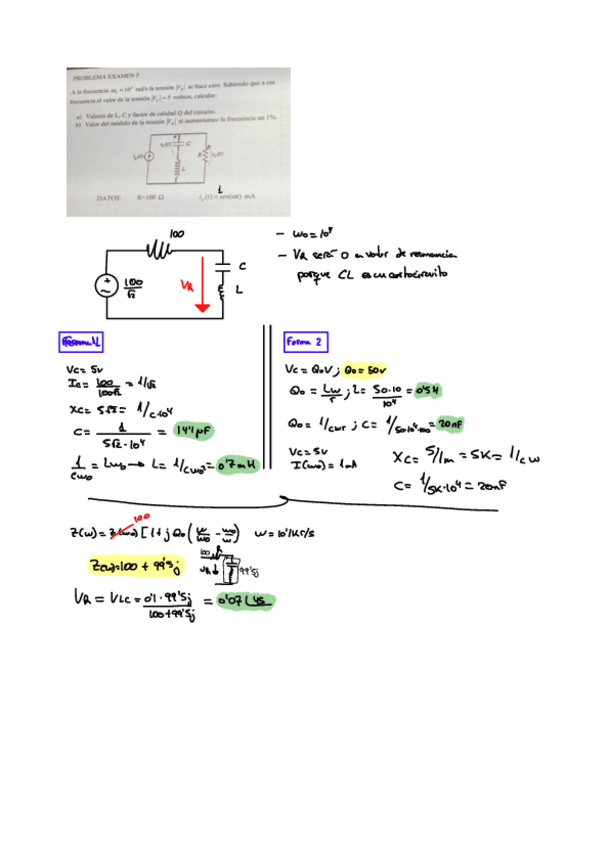 PROBLEMA EXAMEN 5
A la frecuencia ω₀ = 10⁴ rad/s la tensión |V_R| se hace cero. Sabiendo que a esa
frecuencia el valor de la tensión |V_C| = 5 voltios, calcular:
a) Valores de L, C y factor de calidad Q del circuito.
b) Valor del módulo de la tensión |V_R| si aumentamos la frecuencia un 1%.
C
L
R
DATOS: R=100 Ω i_g(t) = sen(ωt) mA
1
100
100/√2
VR
C
L
- ω0 = 10⁴
- VR será 0 en valor de resonancia
porque CL es un cortocircuito
Forma 1
Vc = 5v
= 100/100√2 = 1/√2
Xc = 5√2 = 1/C·10⁴
C = 1/5√2·10⁴ = 14'1 μF
1/Cω0 = Lω0 → L = 1/Cω0² = 0'7 mH
Forma 2
Vc = Q0V ; Q0 = 50v
Q0 = Lω/r ; L = 50·10/10⁴ = 0'5H
Q0 = 1/Cωr ; C = 1/50·10⁴·100 = 20nF
Vc = 5v
I(ω0) = 1mA
Xc = 5/1m = 5K = 1/Cω
C = 1/5K·10⁴ = 20nF
100
Z(ω) = Z(ω0) [1 + j Q0 (ω/ω0 - ω0/ω) ω = 10'1Kr/s
Z(ω) = 100 + 99'5j
100
VR
99'5j
VR = VLC = 0'1·99'5j/100+99'5j = 0'07∠45